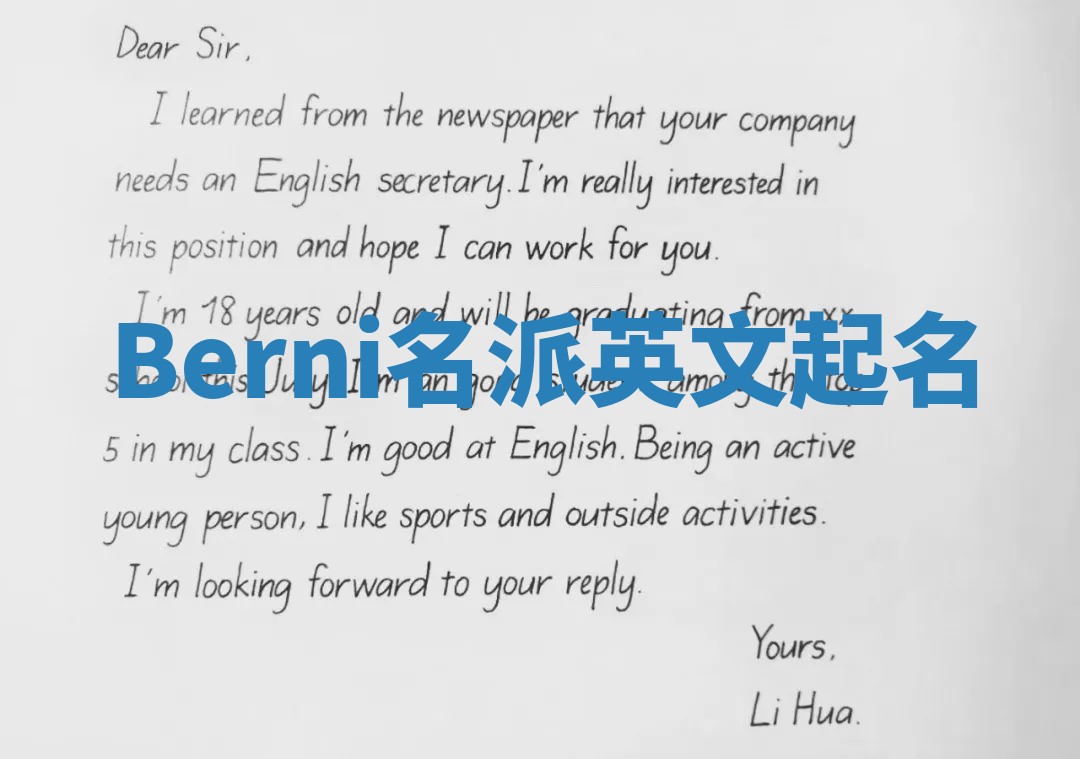 Dear Sir,
I learned from the newspaper that your company
needs an English secretary. I'm really interested in
this position and hope I can work for you.
I'm 18 years old and will be graduating from xx
Berni名派英文起名
school this July. I'm an good student among the top
5 in my class. I'm good at English. Being an active
young person, I like sports and outside activities.
I'm looking forward to your reply.
Yours,
Li Hua.